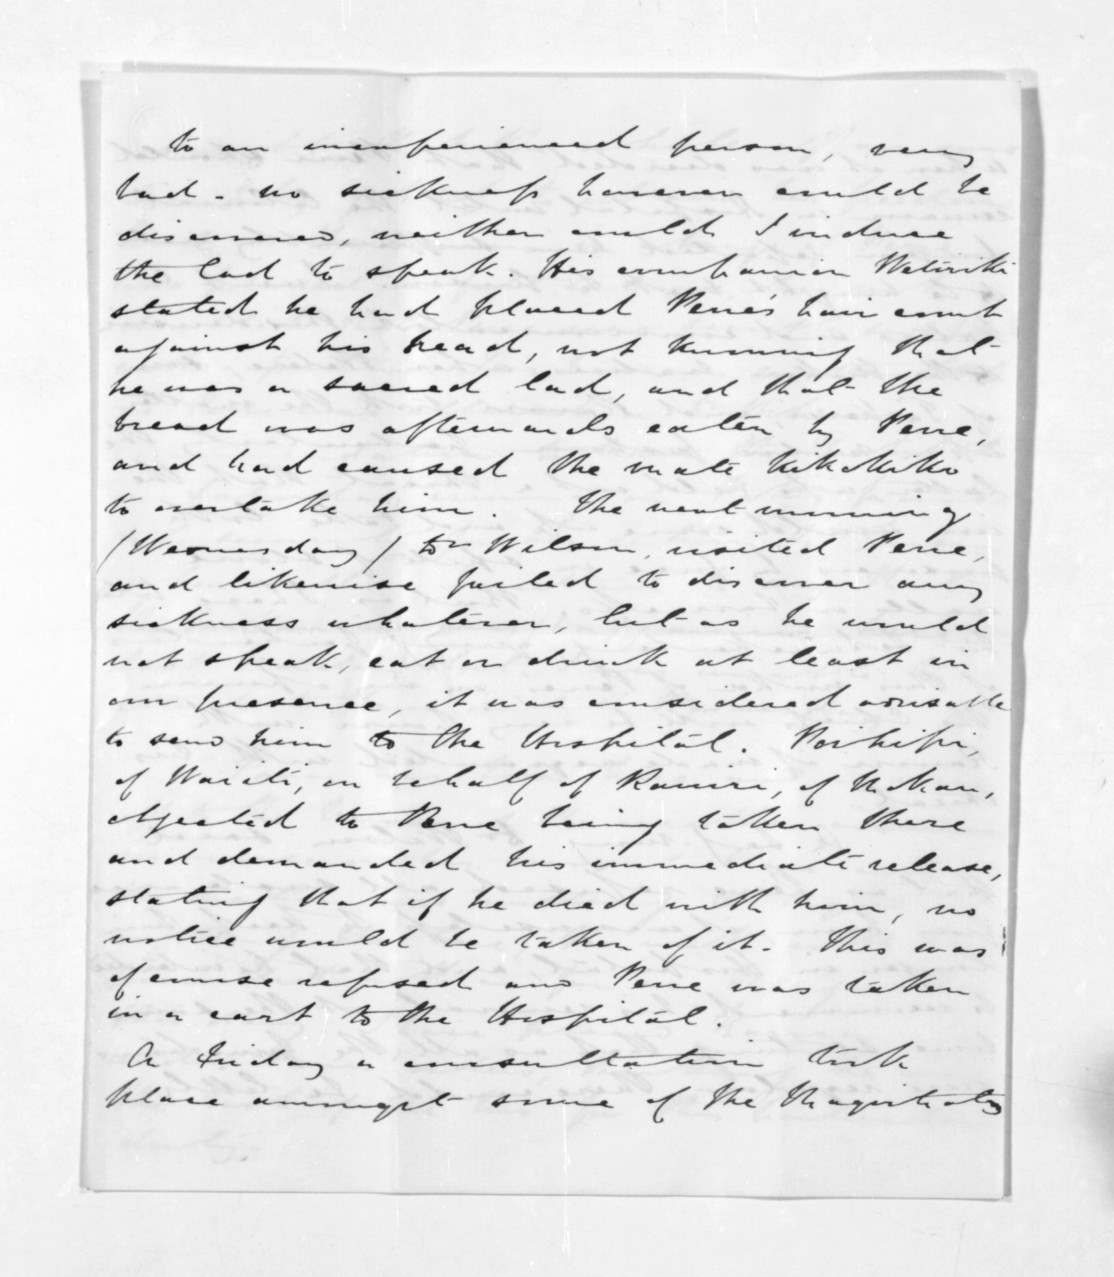 to an inexperienced person, very
bad - no sickness however could be
discovered, neither could I induce
the lad to speak. His companion
stated he had placed Pene's hair comb
against his bread, not knowing that
he was a sacred lad, and that the
bread was afterwards eaten by Pene,
and had caused the mate kikokiko
to overtake him. The next morning
(Wednesday) Dr Wilson, visited Pene,
and likewise failed to discover any
sickness whatever, but as he would
not speak, eat or drink at least in
our presence, it was considered advisable
to send him to the Hospital. Poihipi,
of Waiiti, on behalf of of
objected to Pene being taken there
and demanded his immediate release,
stating that if he died with him, no
notice would be taken of it. This was
of course refused and Pene was taken
in a cart to the Hospital.
A Friday a consultation took
place amongst some of the Magistrates